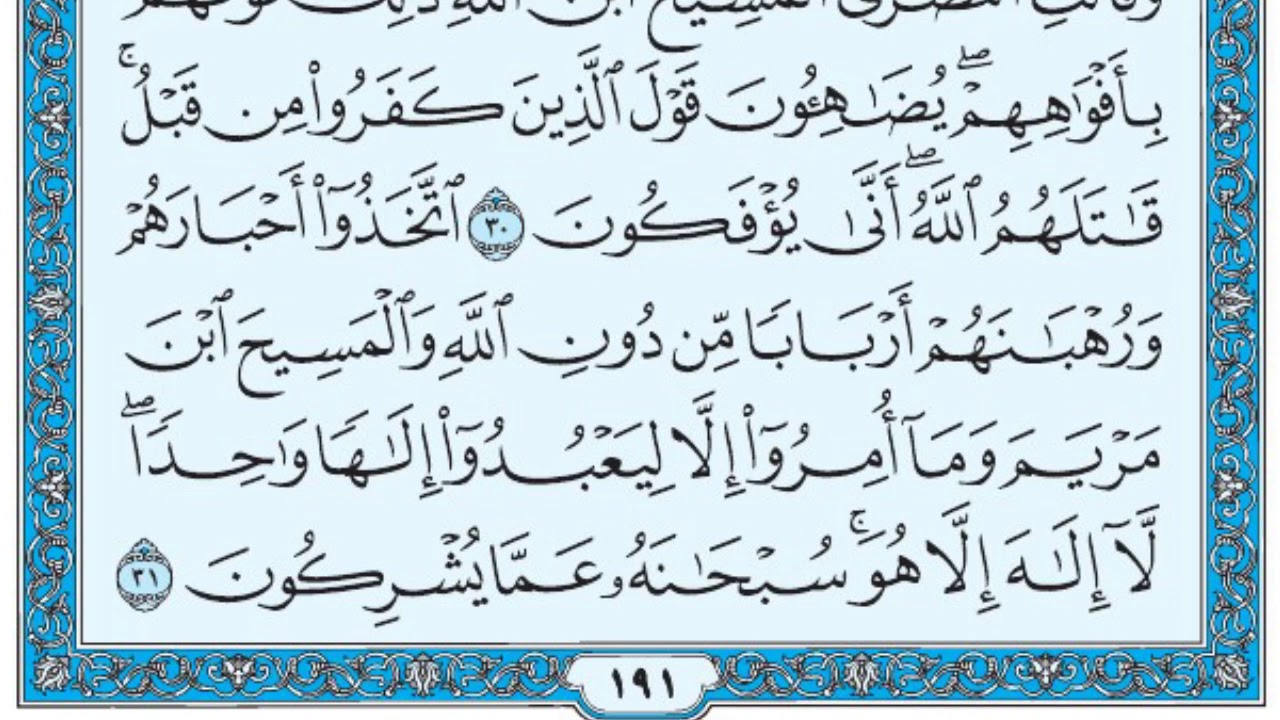 وَقَالَتِ النَّصَٰرَى الْمَسِيحُ ابْنُ اللَّهِ ذَٰلِكَ قَوْلُهُم
بِأَفْوَٰهِهِمْ ۖ يُضَٰهِـُٔونَ قَوْلَ ٱلَّذِينَ كَفَرُوا۟ مِن قَبْلُ ۚ
قَٰتَلَهُمُ ٱللَّهُ ۖ أَنَّىٰ يُؤْفَكُونَ ٣٠ ٱتَّخَذُوٓا۟ أَحْبَارَهُمْ
وَرُهْبَٰنَهُمْ أَرْبَابًا مِّن دُونِ ٱللَّهِ وَٱلْمَسِيحَ ٱبْنَ
مَرْيَمَ وَمَآ أُمِرُوٓا۟ إِلَّا لِيَعْبُدُوٓا۟ إِلَٰهًا وَٰحِدًا ۖ
لَّآ إِلَٰهَ إِلَّا هُوَ ۚ سُبْحَٰنَهُۥ عَمَّا يُشْرِكُونَ ٣١
١٩١